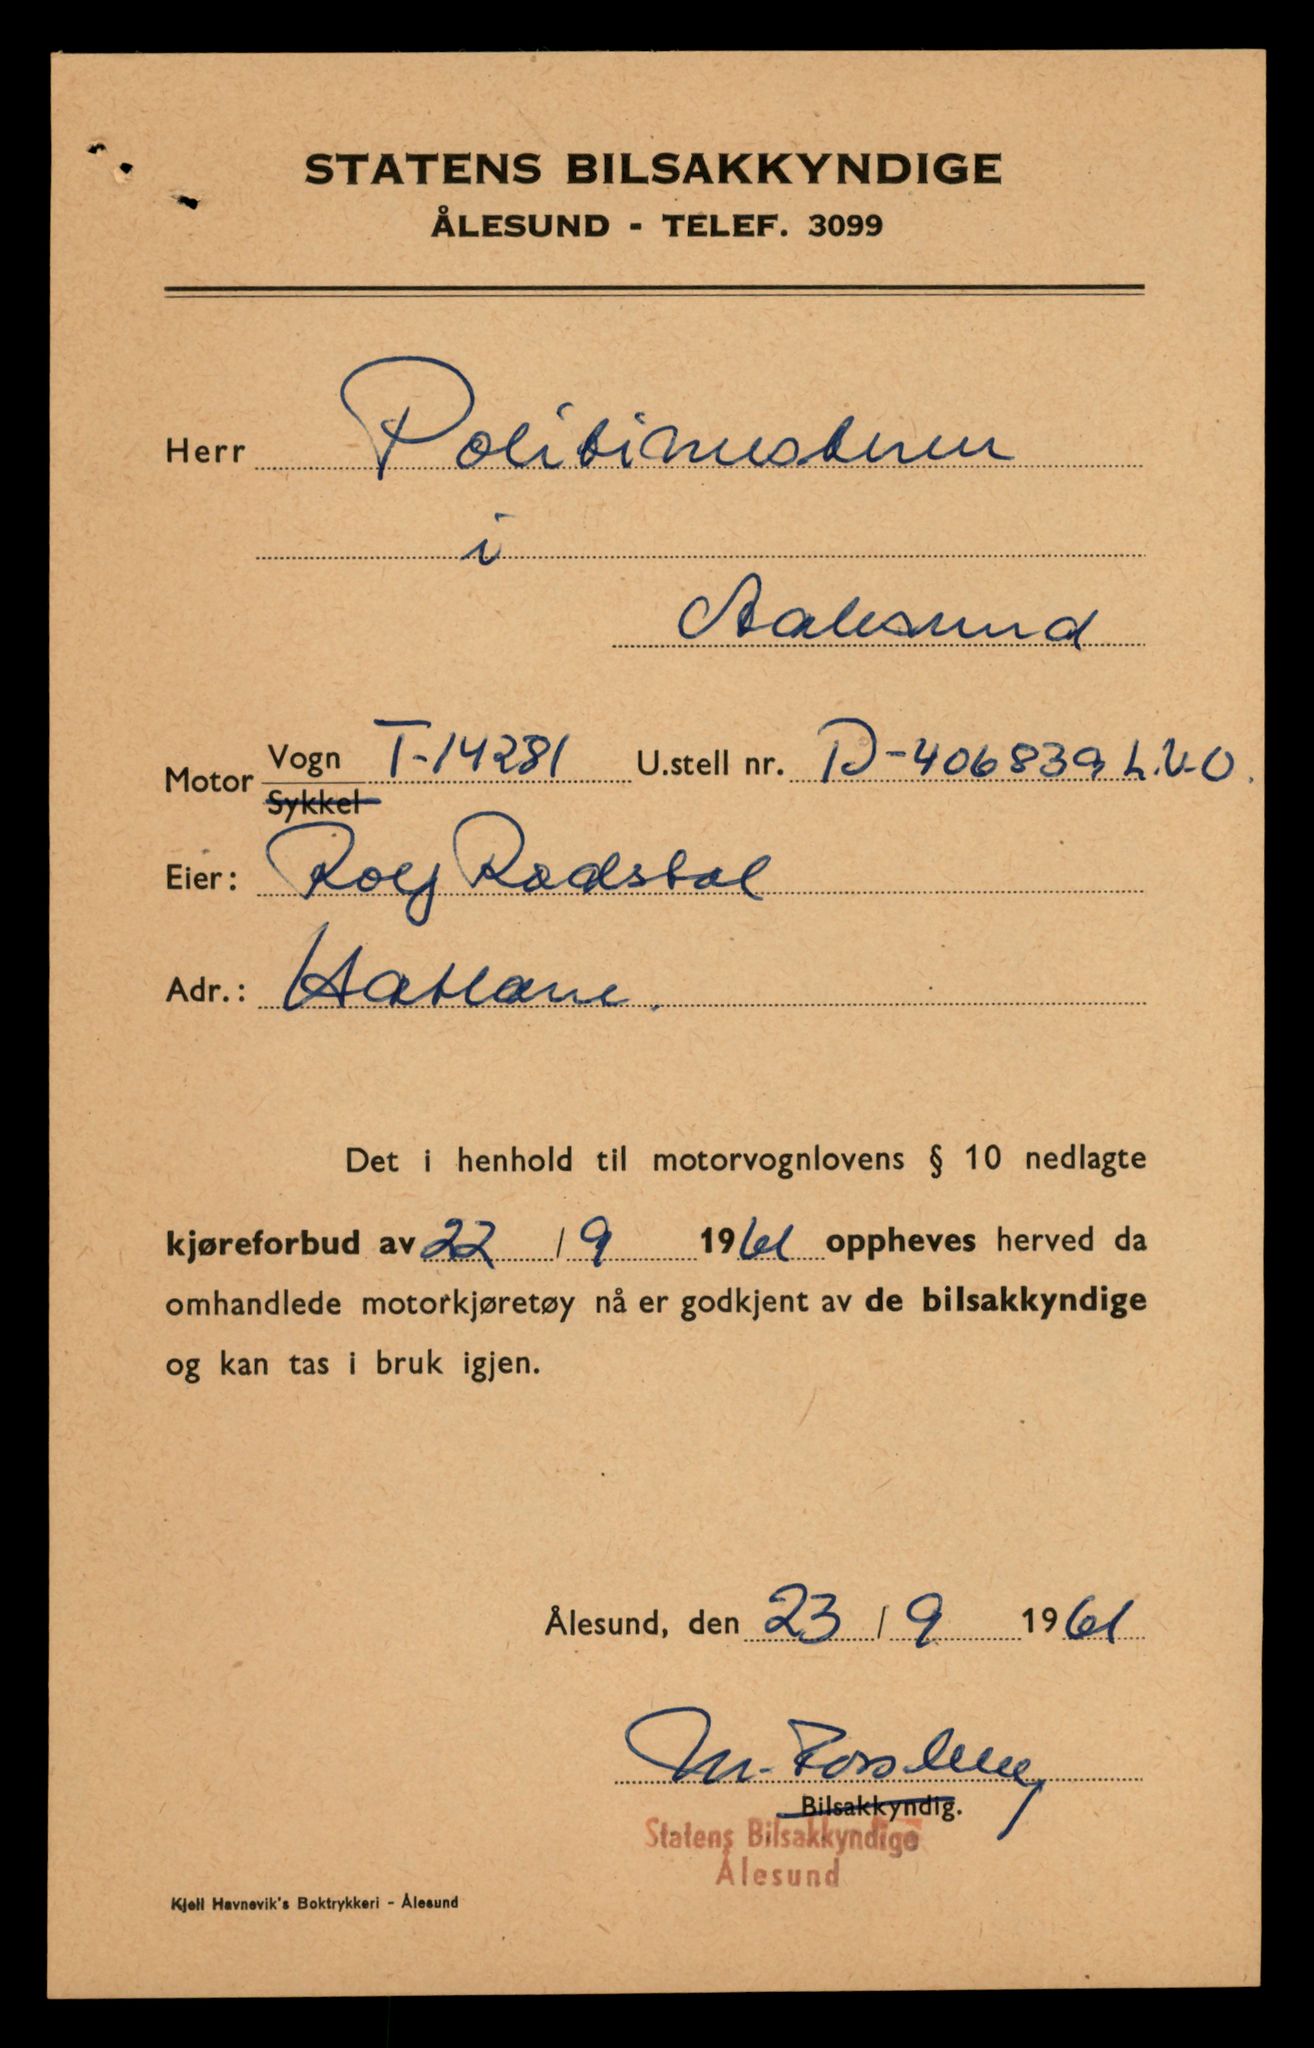 STATENS BILSAKKYNDIGE
ÅLESUND - TELEF. 3099
Herr Politimesteren
i
Aalesund
Motor Vogn T-14281 U.stell nr. D-406839 L.V-O.
Sykkel
Eier: Rolf Rødstøl
Adr.: Hatlane.
Det i henhold til motorvognlovens § 10 nedlagte
kjøreforbud av 22 / 9 1961 oppheves herved da
omhandlede motorkjøretøy nå er godkjent av de bilsakkyndige
og kan tas i bruk igjen.
Ålesund, den 23 / 9 1961
M.
Bilsakkyndig.
Statens Bilsakkyndige
Ålesund
Kjell Havnevik's Boktrykkeri - Ålesund